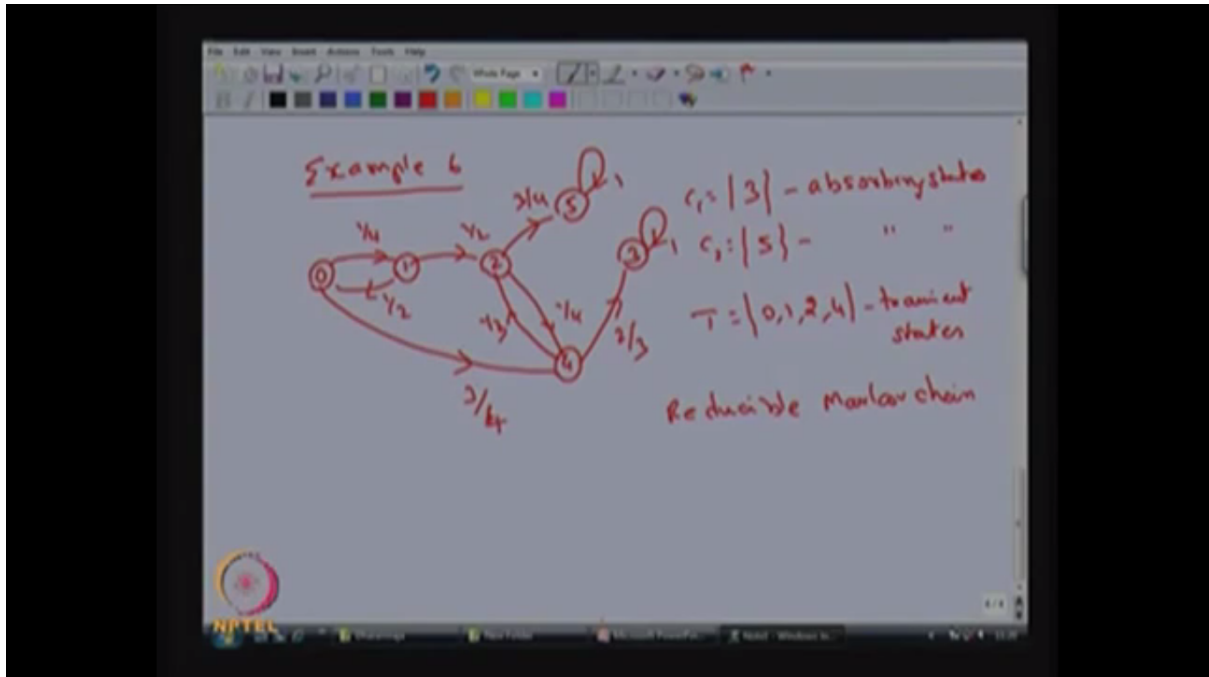 File Edit View Insert Actions Tools Help
Whole Page
Example 6
1/4
1/2
3/4
5
1
0
1
2
3
1
1/2
1/3
1/4
2/3
4
3/4
C₁ = {3} - absorbing states
C₂ = {5} - " "
T = {0,1,2,4} - transient
states
Reducible Markov chain
NPTEL
New Folder